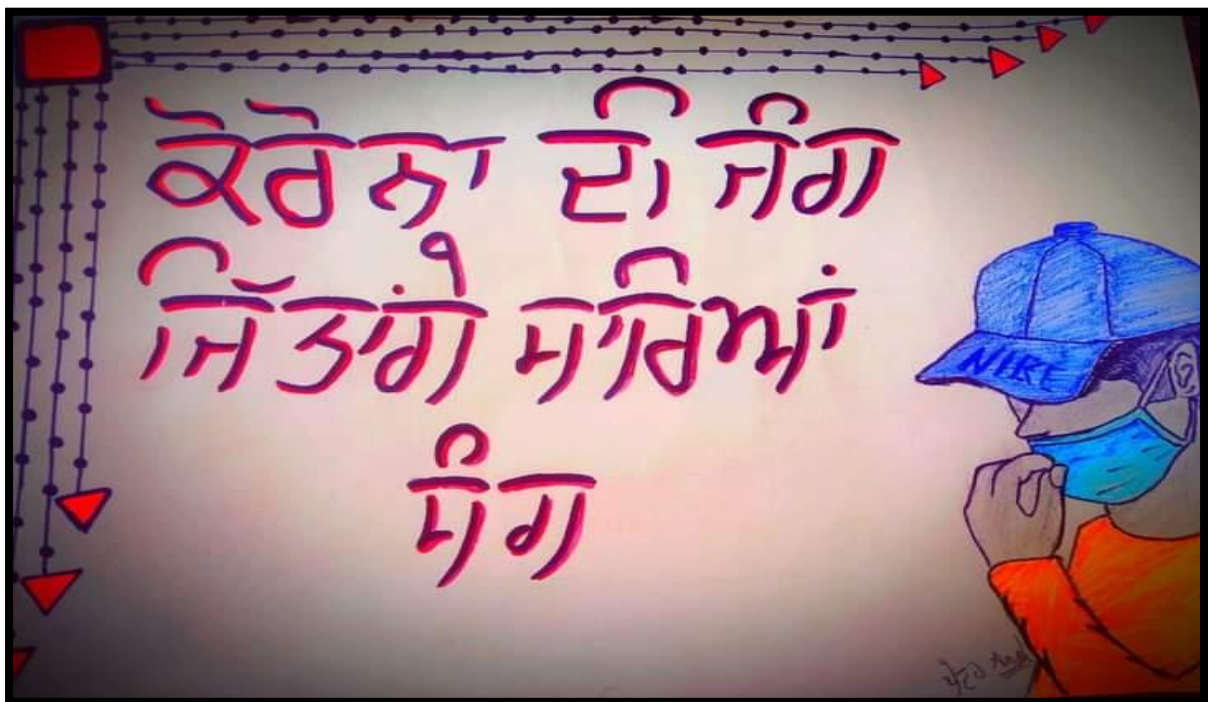 ਕੋਰੋਨਾ ਦੀ ਜੰਗ
ਜਿੱਤਾਂਗੇ ਸਾਰਿਆਂ
ਸੰਗ
NIKE